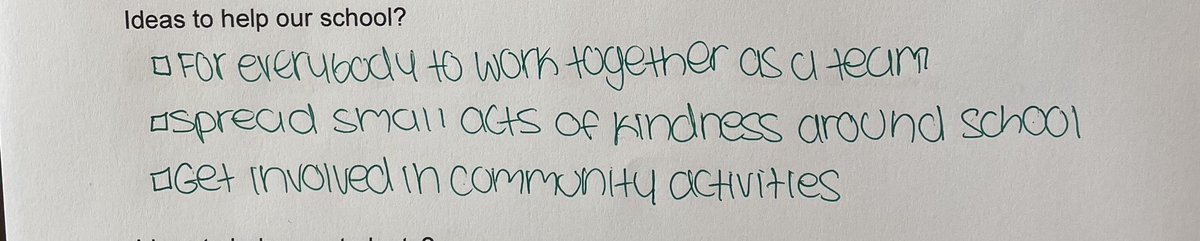 Ideas to help our school?
□ For everybody to work together as a team
□ spread small acts of kindness around school
□ Get involved in community activities